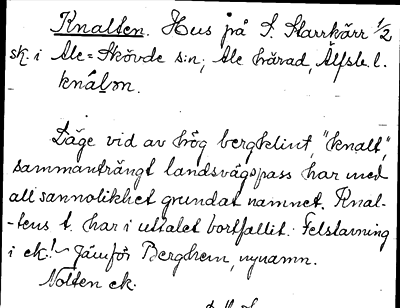 Knalten. Hus på S. Starrkärr 1/2
sk. i Ale-Skövde s:n, Ale härad, Älfsb. l.
knál̲o̲n.
Läge vid av hög bergklint, "knalt",
sammanträngt landsvägspass har med
all sannolikhet grundat namnet. Knal-
-tens t. har i uttalet bortfallit. Felstavning
i ek.! - Jämför Berghem, nynamn.
Nolten ek.